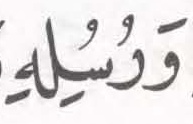 وَرُسُلِهِ